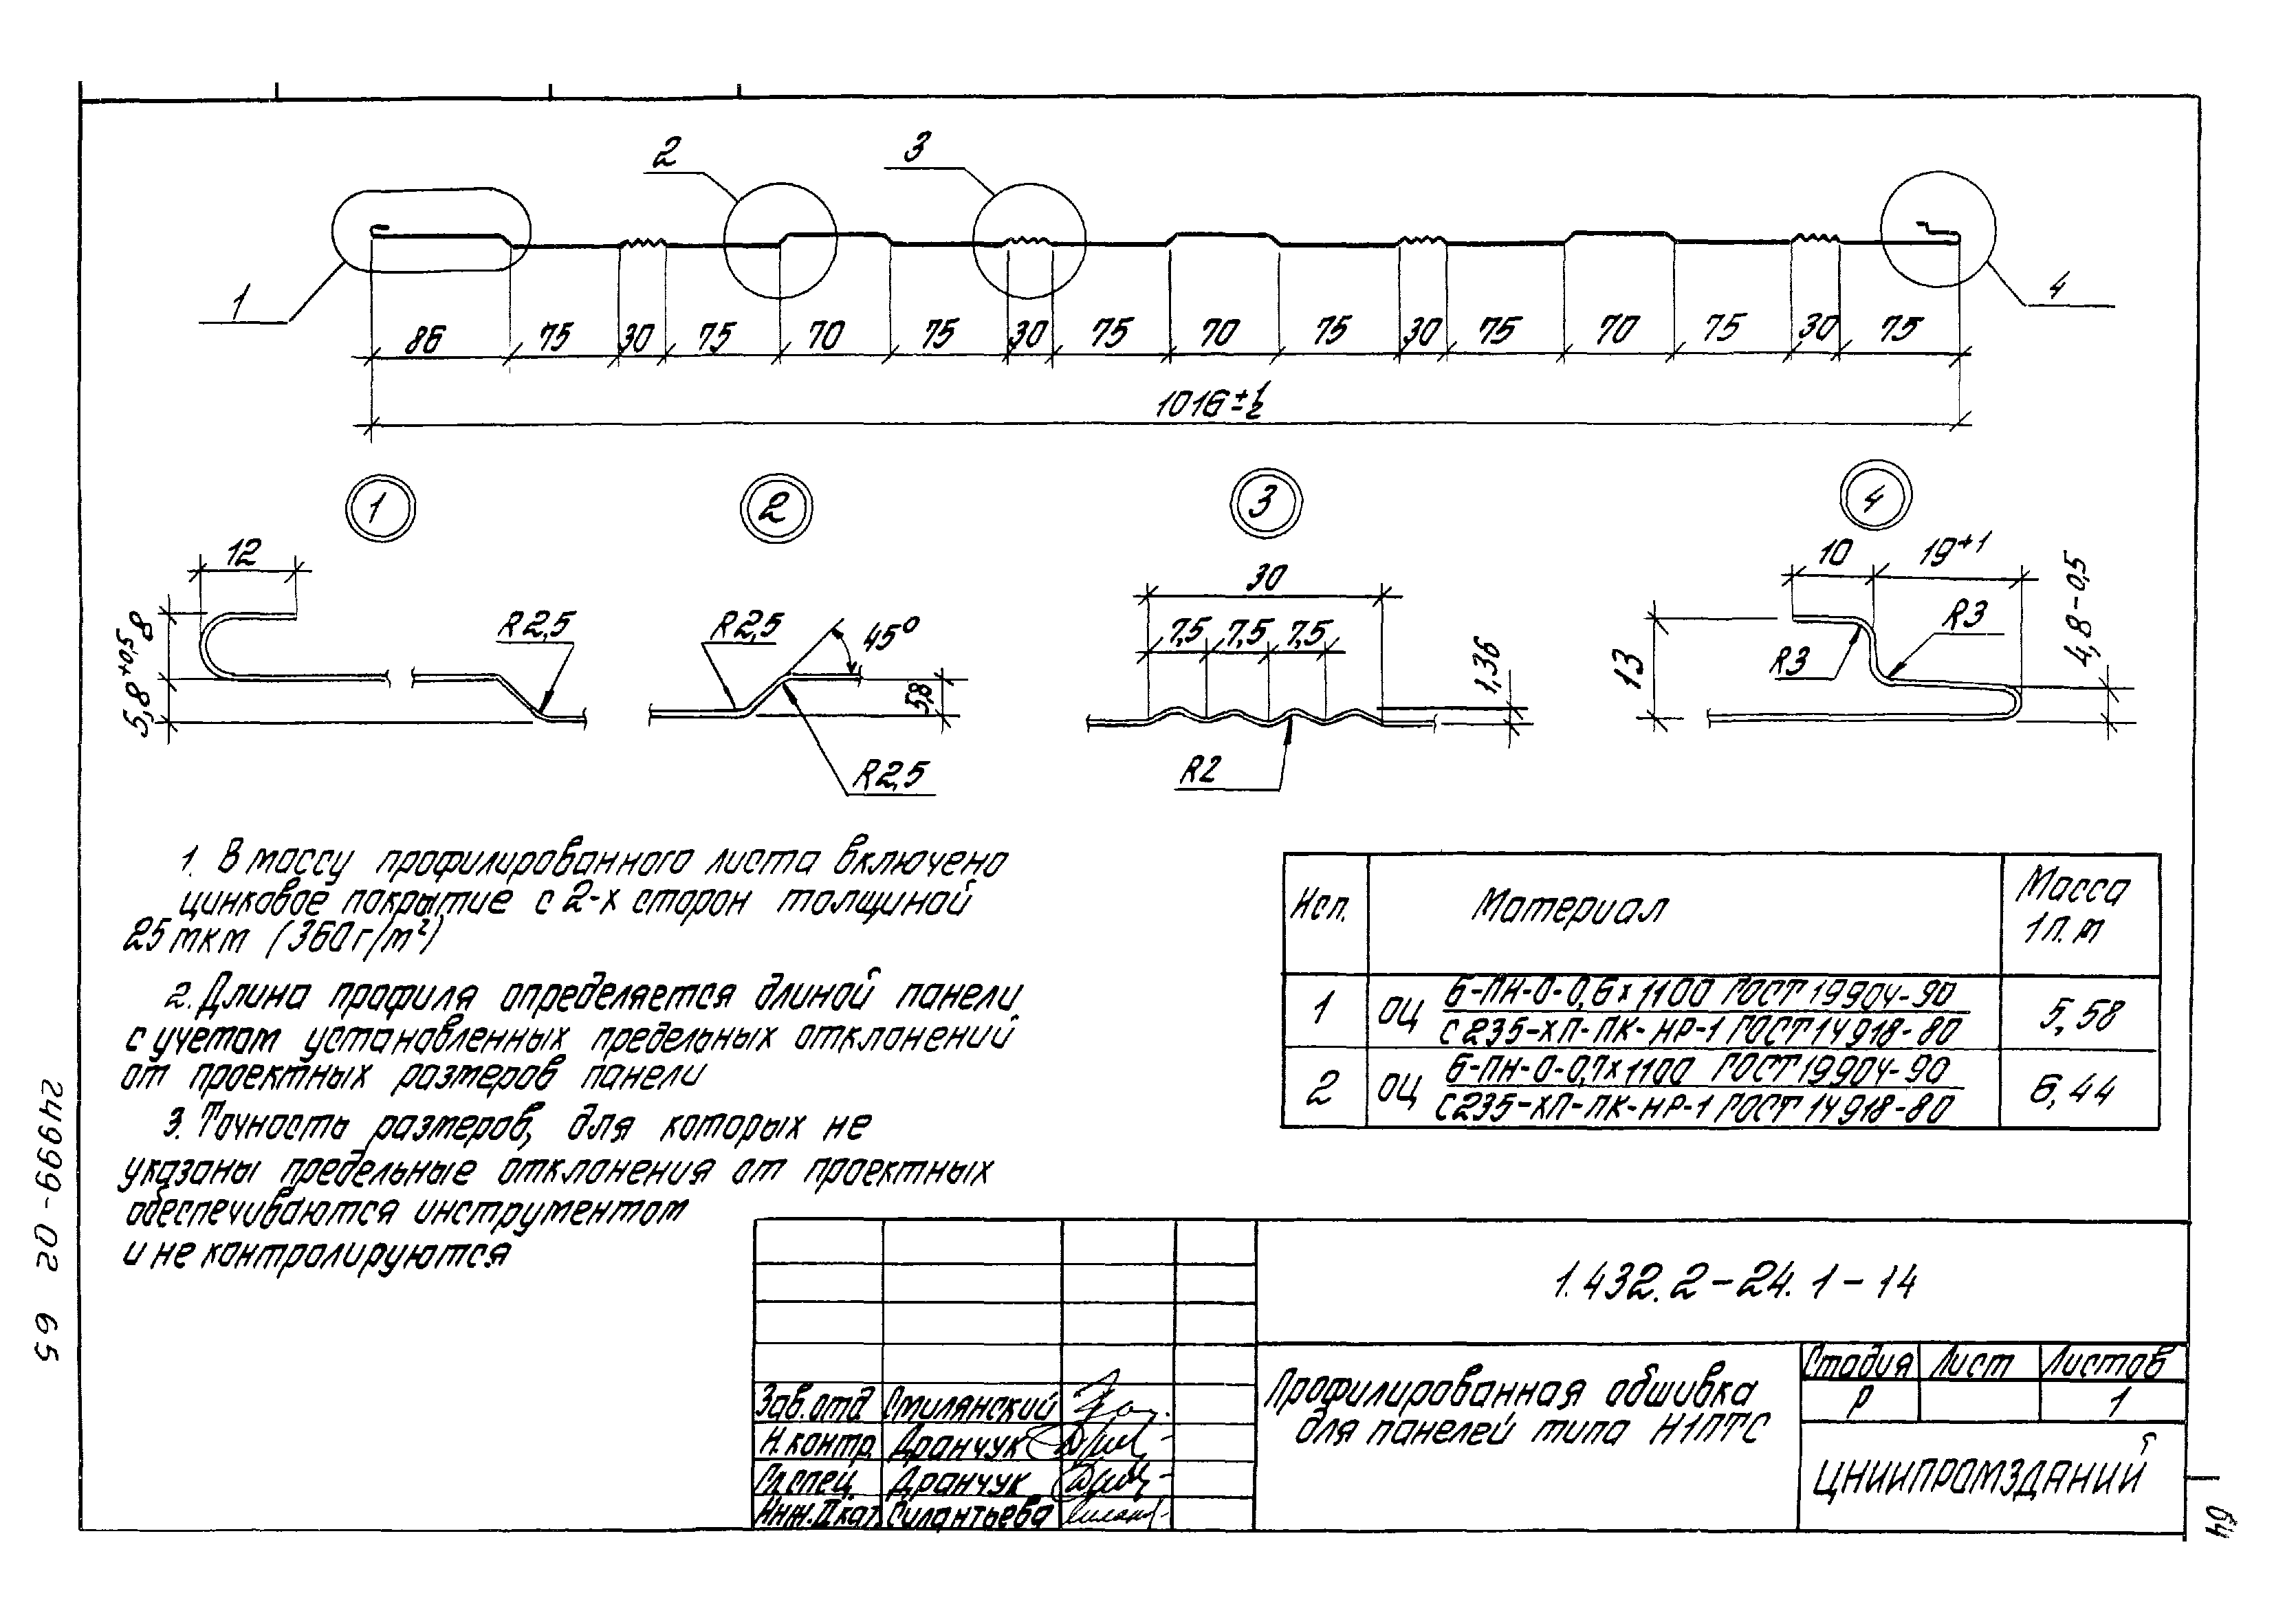 2
3
1
4
86 75 30 75 70 75 30 75 70 75 30 75 70 75 30 75
1016 ± 1/2
1
2
3
4
12
8
5,8+0,5
R2,5
R2,5
45°
5,8
R2,5
30
7,5 7,5 7,5
1,36
R2
10 19+1
4,8-0,5
R3
R3
13
1. В массу профилированного листа включено
цинковое покрытие с 2-х сторон толщиной
25 мкм (360г/м²)
2. Длина профиля определяется длиной панели
с учетом установленных предельных отклонений
от проектных размеров панели
3. Точность размеров, для которых не
указаны предельные отклонения от проектных
обеспечиваются инструментом
и не контролируются
Исп. Материал Масса
1 п. м
1 ОЦ Б-ПН-О-0,6х1100 ГОСТ 19904-90 5,58
С235-ХП-ПК-НР-1 ГОСТ 14918-80
2 ОЦ Б-ПН-О-0,7х1100 ГОСТ 19904-90 6,44
С235-ХП-ПК-НР-1 ГОСТ 14918-80
1.432.2-24.1-14
Зав.отд Смилянский
Н.контр. Дранчук
Гл.спец. Дранчук
Инж.IIкат. Силантьева
Профилированная обшивка
для панелей типа Н1ПТС
Стадия Лист Листов
Р 1
ЦНИИПРОМЗДАНИЙ
24999-02 65
64